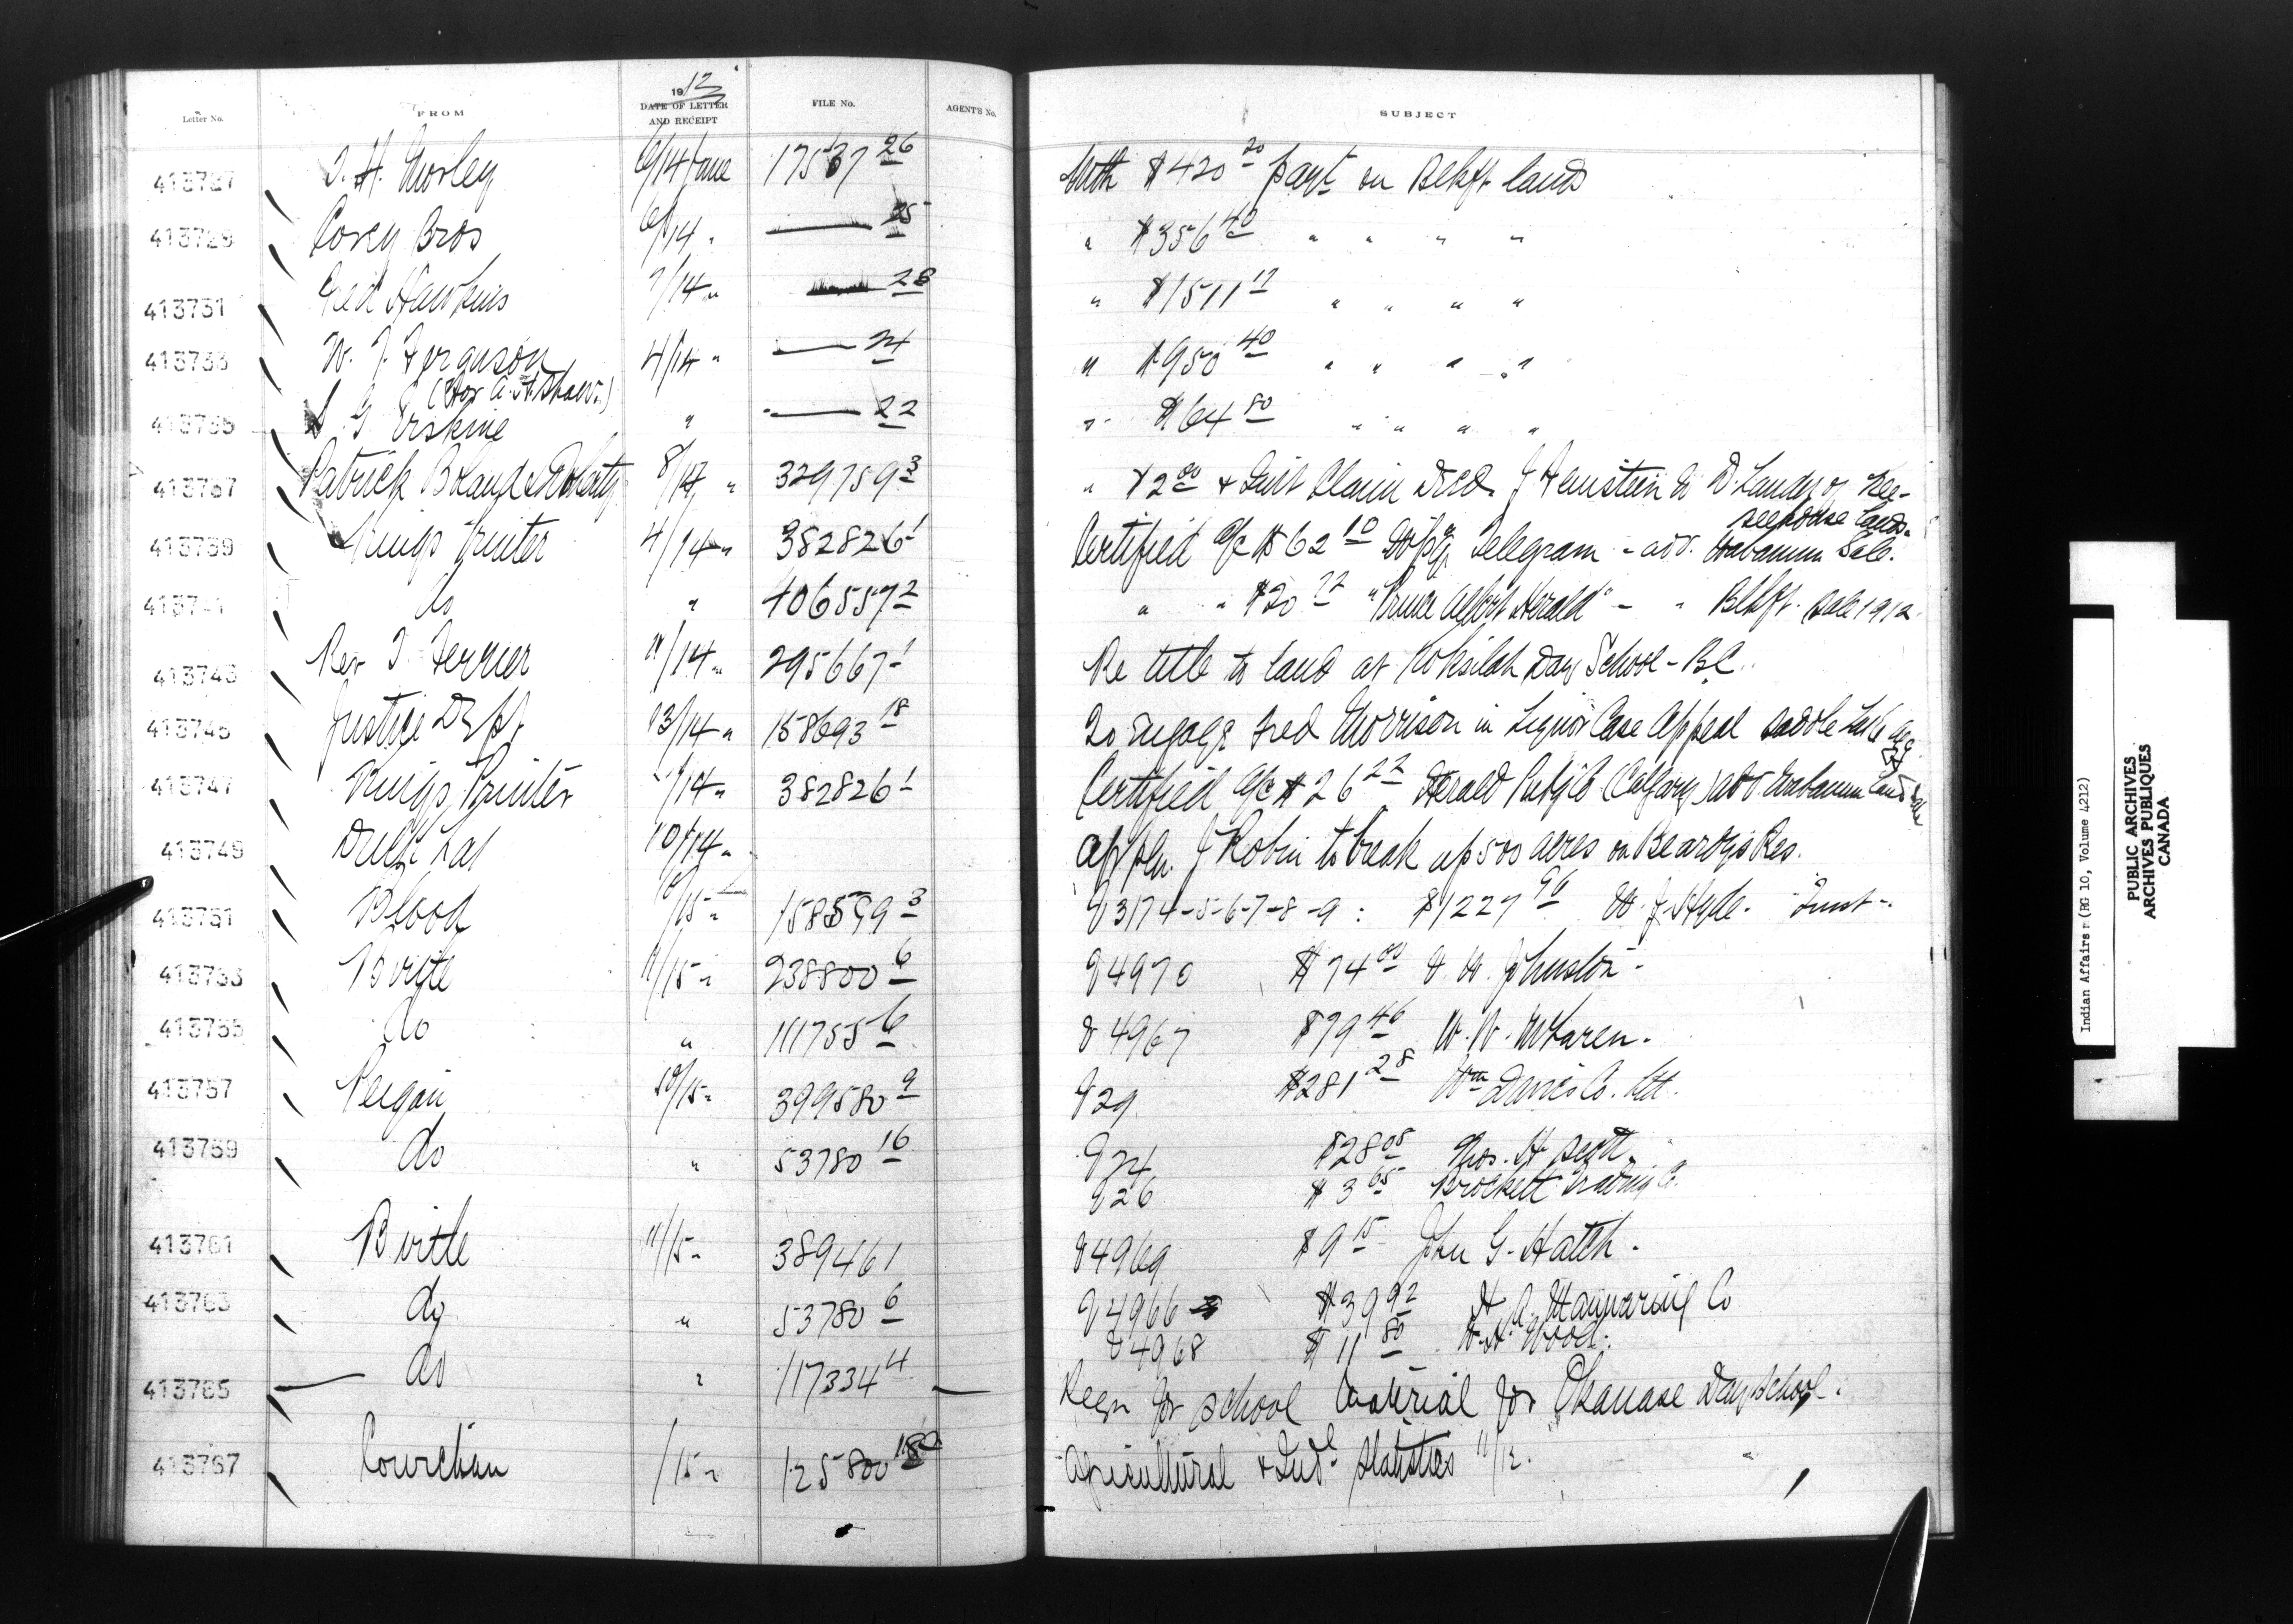 Letter No. FROM 1912 DATE OF LETTER AND RECEIPT FILE No. AGENT'S No. SUBJECT
413727 T. H. Morley 6/14 June 17537 26 With $420 20 payt on Blkft lands
413729 Corey Bros 6/14 " — 25 " $356 40 " " " "
413731 Hawkins 7/14 " — 28 " $1511 " " " "
413733 W. J. Ferguson 4/14 " — 24 " $950 40 " " " "
(for A. H. Shaw)
413735 Erskine " — 22 " $64 80 " " " "
413737 Patrick 8/14 " 329759 3 " $2 00 & Quit Claim Deed
413739 Kings Printer 4/14 " 382826 1 Certified a/c $62 10 Telegram - adv. Wabamun Sale.
413741 do " 406557 2 " " $20 "Prince Albert Herald" - " Blkft. Sale 1912.
413743 Rev T. Ferrier 11/14 " 295667 1 Re title to land at Koksilah Day School - B.C.
413745 Justice Dept 13/14 " 158693 18 To engage Fred Morrison in Liquor Case Appeal Saddle Lake Agy
413747 Kings Printer /14 " 382826 1 Certified a/c $26 22 Herald Pub'g Co (Calgary) adv. Wabamun Land Sale
413749 Duck Lake 10/14 " Appln. J Robin to break up 500 acres on Beardys Res.
413751 Blood 10/15 " 158599 3 93174-5-6-7-8-9 : $1227 96 W. J. Hyde.
413753 Birtle 11/15 " 238800 6 94970 $74 00 Johnston -
413755 do " 111755 6 94967 $79 46 W. W. McLaren.
413757 Peigan 10/15 " 399580 9 929 $281 28 Wm Davies Co. Ltd.
413759 do " 53780 16 924 $28 05 Thos. H. Scott.
926 $3 65 Brockett Trading Co.
413761 Birtle 11/15 " 389461 94969 $9 15 John G. Hatch.
413763 do " 53780 6 94966 $39 92 H. A. Manwaring Co
94968 $11 80 Wood.
413765 do " 117334 4 Reqn for school material for Okanase Day School.
413767 Cowichan /15 " 125800 Agricultural & Indl Statistics 11/12.
Indian Affairs (RG 10, Volume 4212)
PUBLIC ARCHIVES
ARCHIVES PUBLIQUES
CANADA